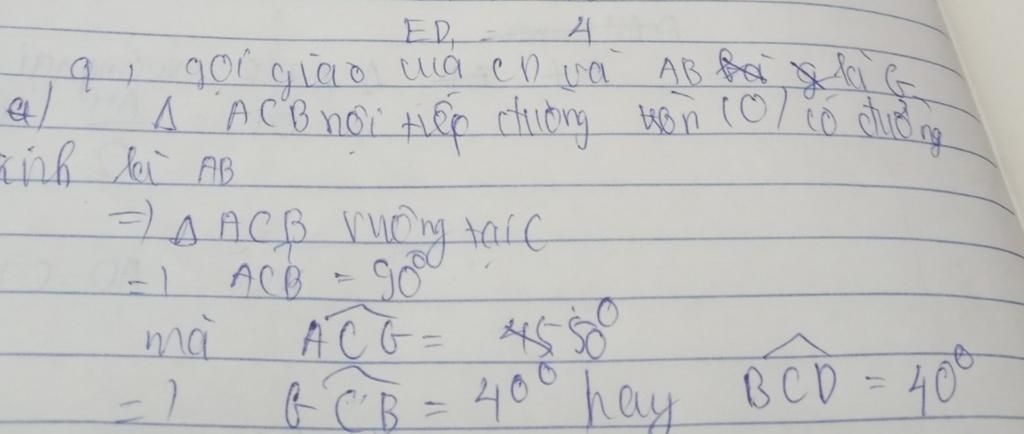 ED, = 4
9, gọi giao của CD và AB là G
a) Δ ACB nội tiếp đường tròn (O) có đường
kính là AB
=) Δ ACB vuông tại C
=) ACB = 90°
mà ACG = 50°
=) GCB = 40° hay BCD = 40°